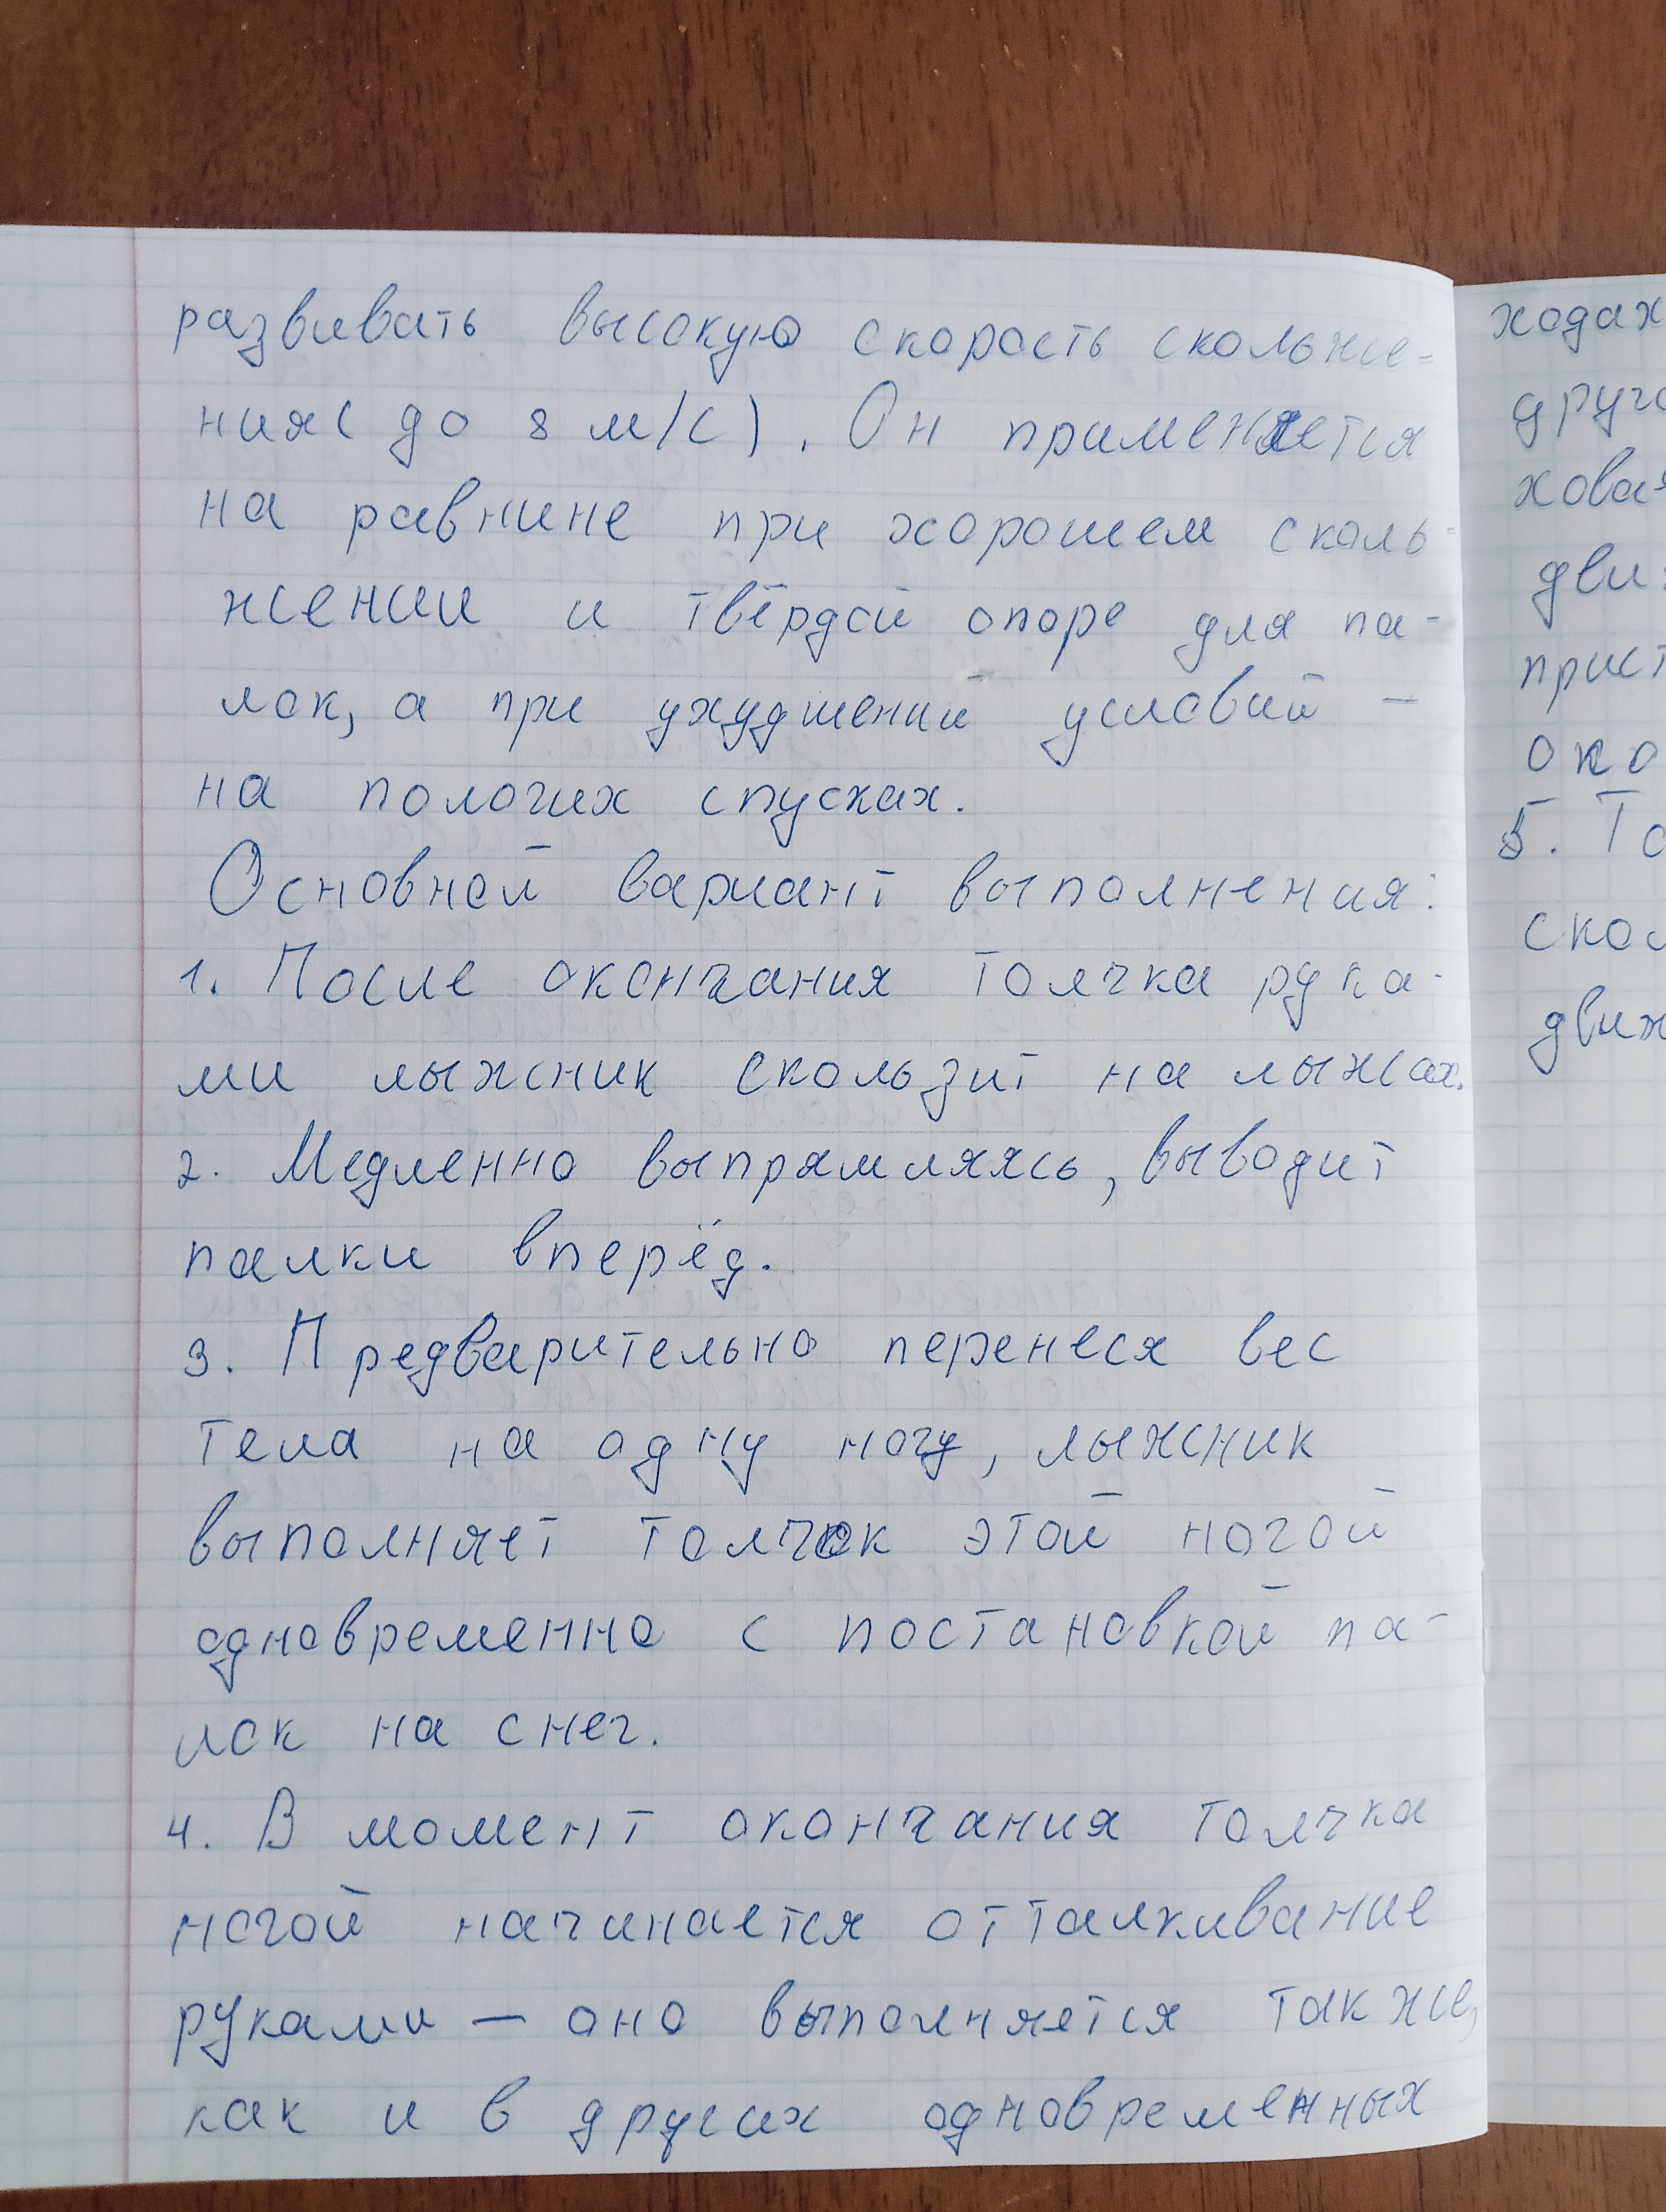 развивать высокую скорость скольже-
ния( до 8 м/с). Он применяется
на равнине при хорошем сколь-
жении и твёрдой опоре для па-
лок, а при ухудшении условий —
на пологих спусках.
Основной вариант выполнения:
1. После окончания толчка рука-
ми лыжник скользит на лыжах.
2. Медленно выпрямляясь, выводит
палки вперёд.
3. Предварительно перенеся вес
тела на одну ногу, лыжник
выполняет толчок этой ногой
одновременно с постановкой па-
лок на снег.
4. В момент окончания толчка
ногой начинается отталкивание
руками — оно выполняется так же,
как и в других одновременных
ходах
друго
ховая
дви
прист
око
5. То
скол
движ